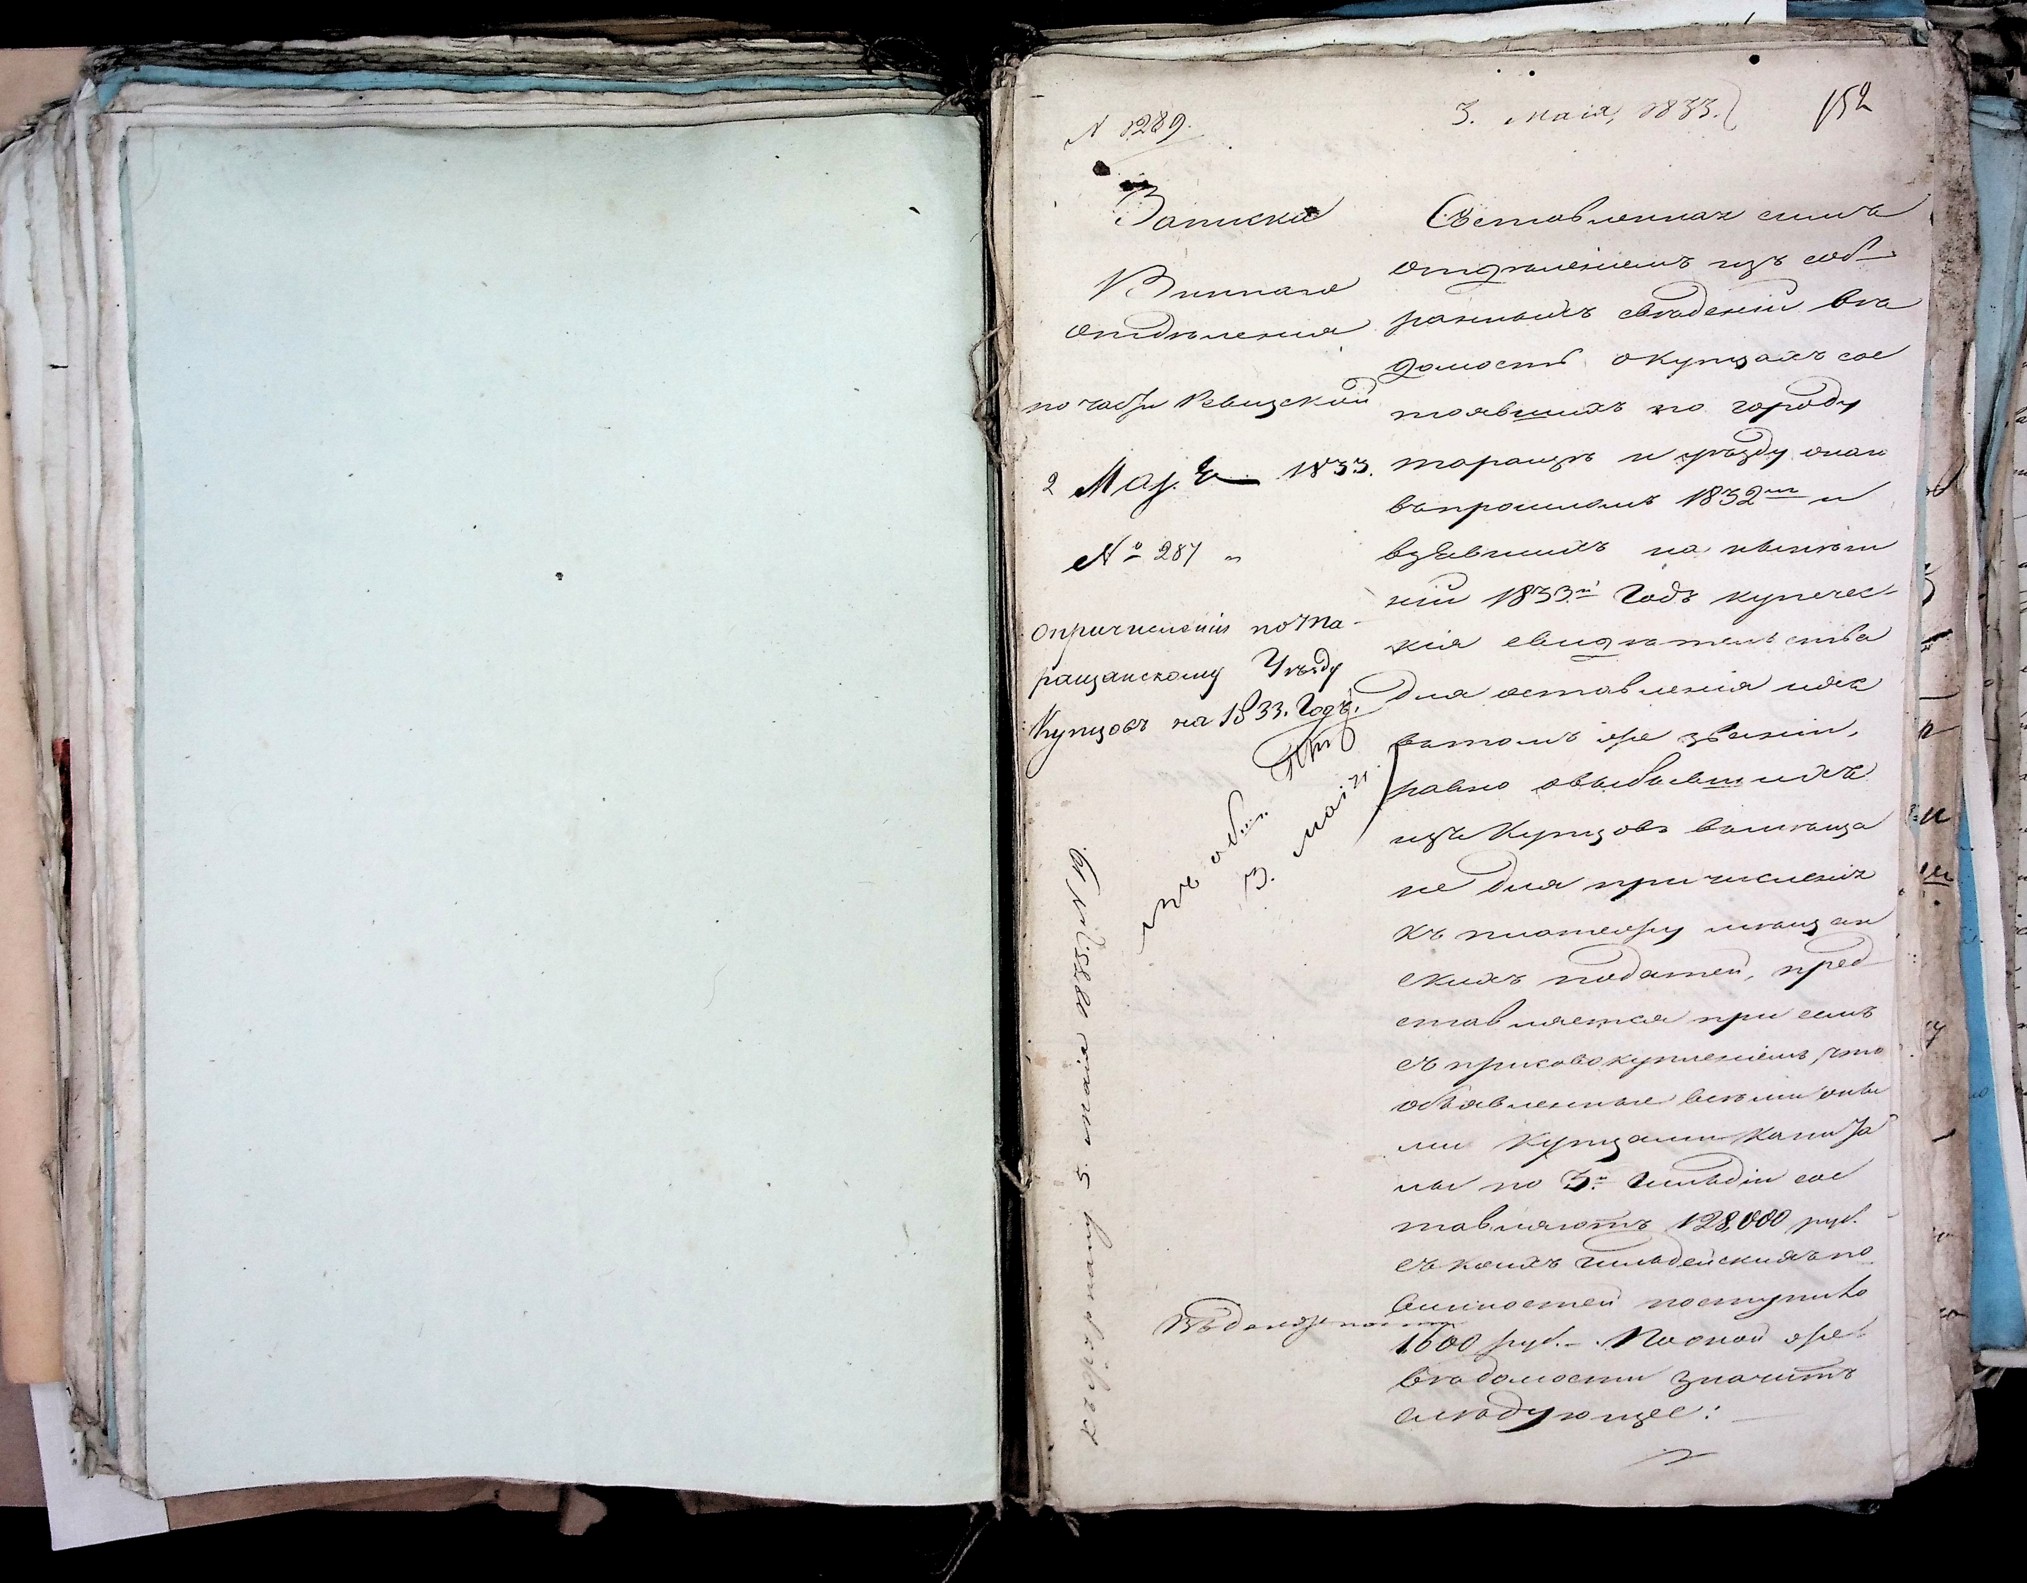 N 1289.
3. Маія, 1833.
152
Записка
Виннаго
отдѣленія
по части Ревизской
2 Мая 1833.
№ 287
о причисленіи по Та-
ращанскому Уѣзду
Купцовъ на 1833. Годъ.
3. маія.
5 маія 1833
Составленная симъ
отдѣленіемъ изъ соб-
ранныхъ свѣдений вѣ
домость о купцахъ сос
тоявшихъ по городу
таращѣ и уѣзду онаго
въ прошломъ 1832мъ и
взявшихъ на нынѣш
ній 1833й Годъ купечес-
кія свидѣтельства
для оставленія ихъ
въ томъ же званіи,
равно о выбывшихъ
изъ Купцовъ въ мѣща
не для причисленія
къ платежу мѣщан
скихъ податей, пред-
ставляется при семъ
съ присовокупленіемъ, что
объявленные всѣми оны
ми купцами капита
лы по 3й Гильдіи сос
тавляютъ 128,000 руб.
съ коихъ Гильдейскихъ по
винностей поступило
1600 руб. По оной же
вѣдомости значитъ
слѣдующее: